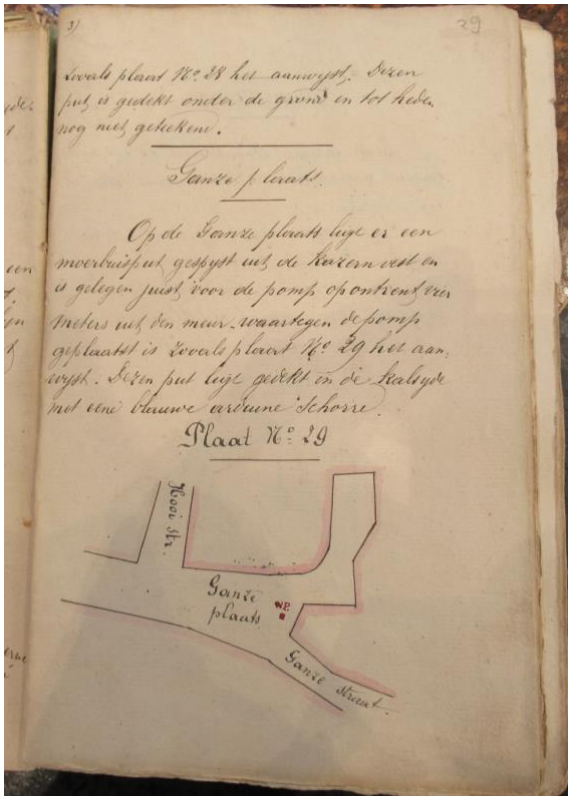 3)
29
zooals plaat No. 28 het aanwyst. Dezen
put is gedekt onder de grond en tot heden
nog niet geteekend.
Ganze plaats.
Op de Ganze plaats ligt er een
moerbuisput gespyst uit de kazern vest en
is gelegen juist voor de pomp op ontrent vier
meters uit den meur waartegen de pomp
geplaatst is zooals plaat No. 29 het aan-
wyst. Dezen put ligt gedekt in de kalsyde
met eene blauwe arduine schorre.
Plaat No. 29
Hooi str.
Ganze
plaats
W.P.
Ganze straat.